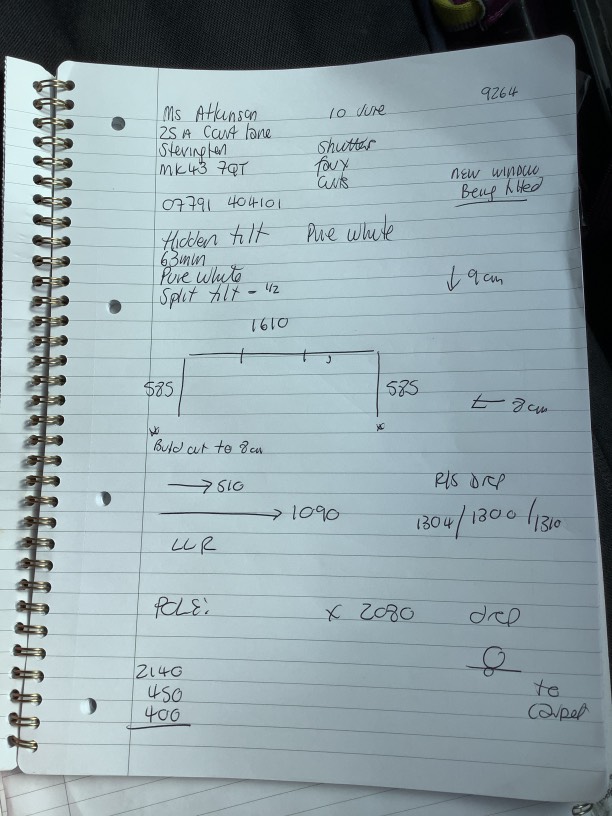 9264
Ms Atkinson 10 June
25A Court Lane
Stevington Shutter
MK43 7QT faux
07791 404101
new window
Being fitted
Hidden tilt Pure white
63mm
Pure white
Split tilt - 1/2
↓ 9cm
1610
585 585
← 8cm
Build out to 8cm
→ 510
→ 1090
LLR
R/S Drop
1304/1300/1310
POLE: x 2080 drop
to
Carpet
2140
450
400